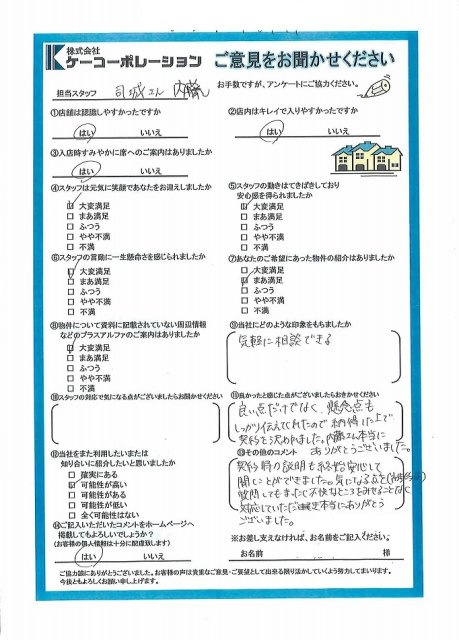 株式会社
ケーコーポレーション
ご意見をお聞かせください
お手数ですが、アンケートにご協力ください。
担当スタッフ 司城さん 内藤さん
①店舗は認識しやすかったですか
はい いいえ
②店内はキレイで入りやすかったですか
はい いいえ
③入店時すみやかに席へのご案内はありましたか
はい いいえ
④スタッフは元気に笑顔であなたをお迎えしましたか
□ 大変満足
□ まあ満足
□ ふつう
□ やや不満
□ 不満
⑤スタッフの動きはてきぱきしており
安心感を得られましたか
□ 大変満足
□ まあ満足
□ ふつう
□ やや不満
□ 不満
⑥スタッフの言動に一生懸命さを感じられましたか
□ 大変満足
□ まあ満足
□ ふつう
□ やや不満
□ 不満
⑦あなたのご希望にあった物件の紹介はありましたか
□ 大変満足
□ まあ満足
□ ふつう
□ やや不満
□ 不満
⑧物件について資料に記載されていない周辺情報
などのプラスアルファのご案内はありましたか
□ 大変満足
□ まあ満足
□ ふつう
□ やや不満
□ 不満
⑨当社にどのような印象をもちましたか
気軽に相談できる
⑩スタッフの対応で気になる点がございましたらお聞かせください
⑪良かったと感じた点がございましたらおきかせください
良い点だけでなく、懸念点も
しっかり伝えてくれたので納得した上で
契約を決められました。内藤さん本当に
ありがとうございました。
⑫当社をまた利用したいまたは
知り合いに紹介したいと思いましたか
□ 確実にある
□ 可能性が高い
□ 可能性がある
□ 可能性が低い
□ 全く可能性はない
⑬その他のコメント
契約時の説明も終始安心して
聞くことができました。気になる点を
質問してもまったく不快なところをみせることなく
対応していただき本当にありがとう
ございました。
⑭ご記入いただいたコメントをホームページへ
掲載してもよろしいでしょうか?
(お客様の個人情報は十分に配慮致します)
はい いいえ
※お差し支えなければ、お名前をご記入ください。
お名前 様
ご協力誠にありがとうございました。お客様の声は貴重なご意見・ご要望として出来る限り活かしていくよう努力してまいります。
今後ともよろしくお願い申し上げます。